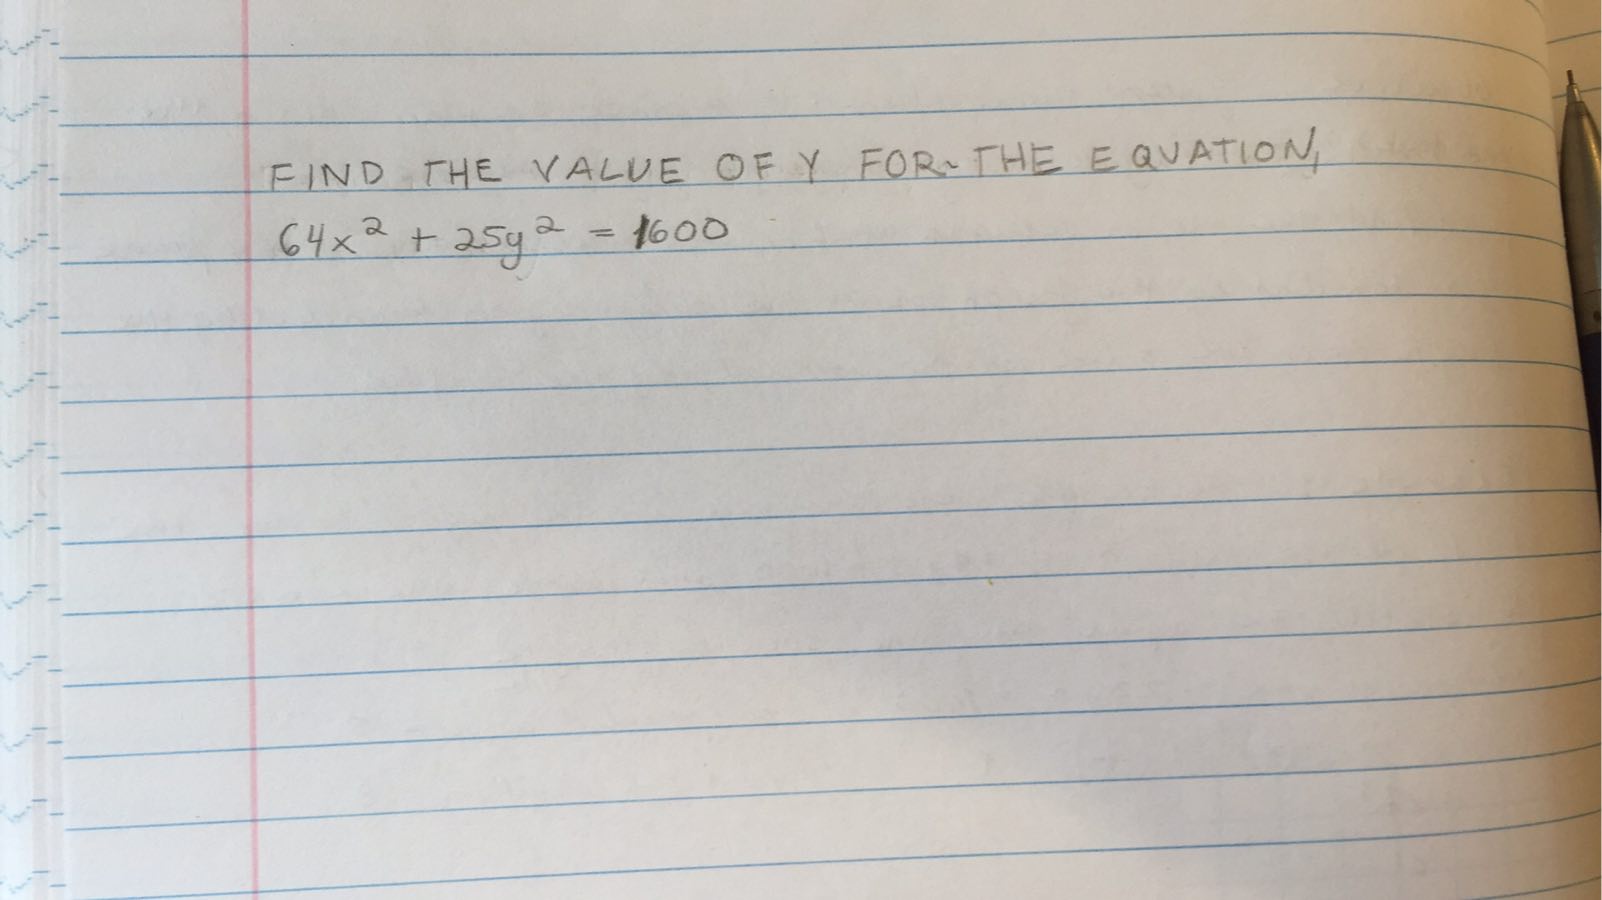 FIND THE VALUE OF Y FOR THE EQUATION,
64x² + 25y² = 1600